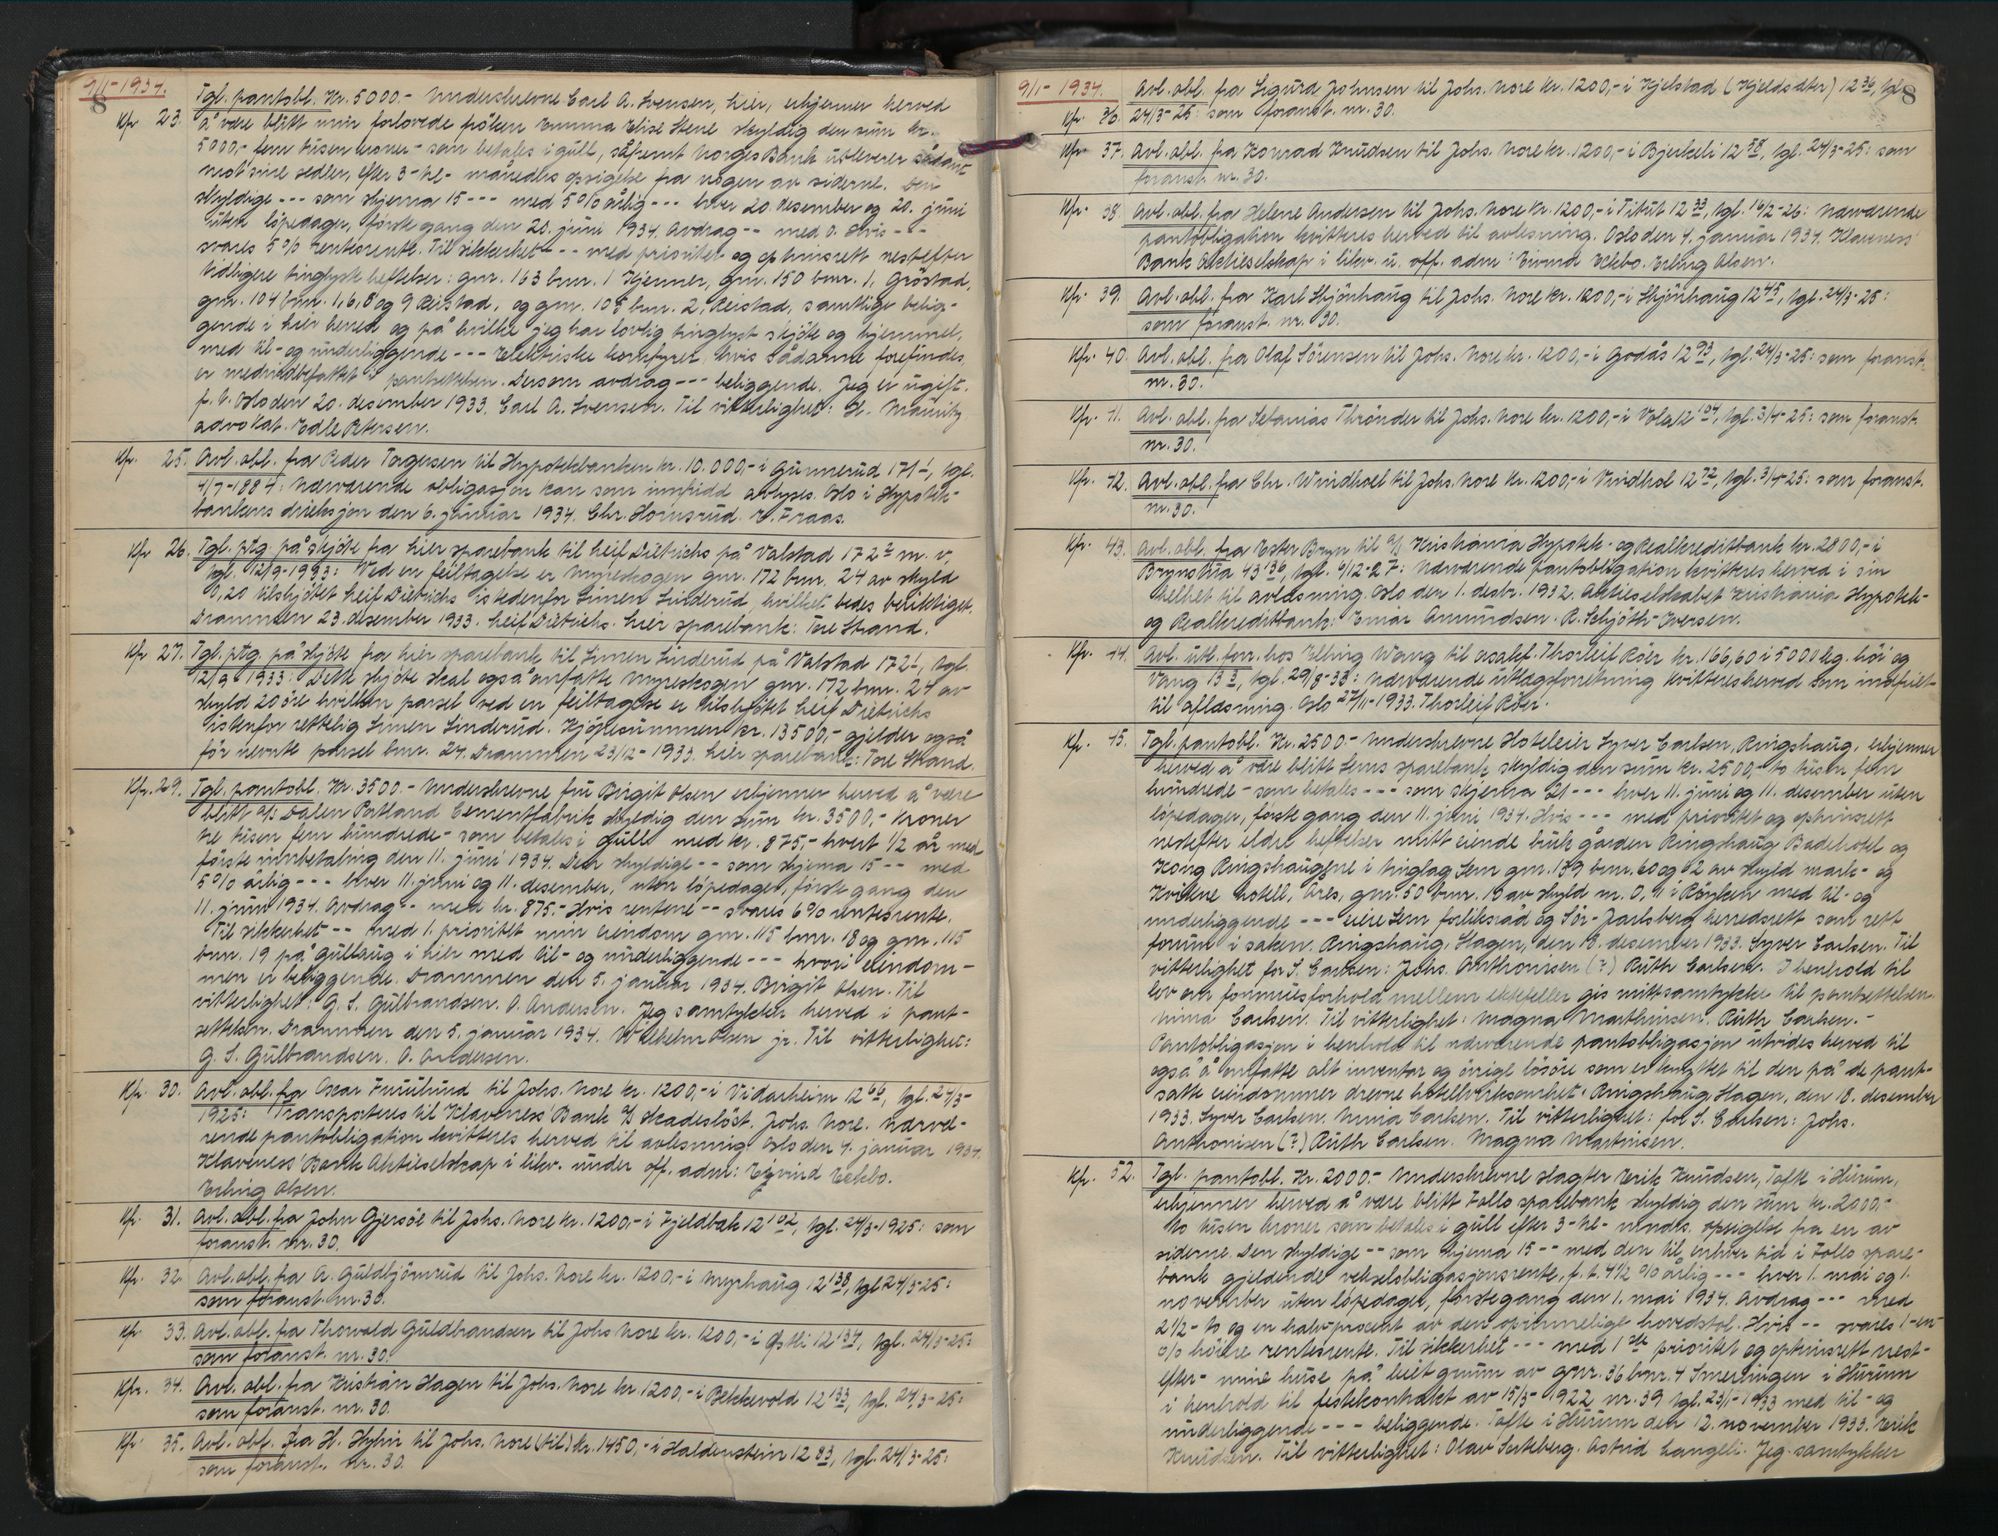 9/1-1934.
8
Kfr 23. Tgl. pantobl. Kr. 5000.- Underskrevne Carl A. Svensen, hier, erkjenner herved
å være blitt min forlovede fröken Emma Elise Stene skyldig den sum kr.
5000,- fem tusen kroner - som betales i gull, såfremt Norges Bank utleverer sådant
mot sine sedler, efter 3-tre- måneders opsigelse fra nogen av siderne. Den
skyldige --- som skjema 15 --- med 5% årlig --- hver 20. desember og 20. juni
uten löpedager, förste gang den 20. juni 1934. Avdrag -- med 0. Hvis --
svares 5% rentesrente. Til sikkerhet --- med prioritet og optrinsrett nestefter
tidligere tinglyste heftelser: gnr. 163 bnr. 1 Kjenner, gnr. 150 bnr. 1, Gröstad,
gnr. 104 bnr. 1, 6, 8 og 9 Reistad, og gnr. 108 bnr. 2, Reistad, samtlige belig-
gende i hier herred og på hvilke jeg har lovlig tinglyst skjöte og hjemmel,
med til- og underliggende --- Elektriske komfyrer hvis sådanne forefindes
er medindbefattet i pantsettelsen. Dersom avdrag --- beliggende. Jeg er ugift.
p. t. Oslo den 20. desember 1933. Carl A. Svensen. Til vitterlighet: H. Mainitz
advokat. Edle Petersen.
Kfr. 25. Avl. obl. fra Peder Torgersen til Hypotekbanken kr. 10.000,- i Gunnerud 171/1, tgl.
4/7-1884: Nærværende obligasjon kan som innfridd avlyses. Oslo i Hypotek-
bankens direksjon den 6. januar 1934. Chr. Hornsrud. E. Fraas.
Kfr 26. Tgl. ptg på skjöte fra hier sparebank til Leif Dietrichs på Valstad 172/2 m. v,
tgl. 12/9-1933: Ved en feiltagelse er Myreskogen gnr. 172 bnr. 24 av skyld
0,20 tilskjötet Leif Dietrichs istedenfor Simen Linderud, hvilket bedes beriktiget.
Drammen 23. desember 1933. Leif Dietrichs. Lier sparebank: Tore Strand.
Kfr 27. Tgl. ptg. på skjöte fra hier sparebank til Simen Linderud på Valstad 172/1, tgl.
12/9 1933: Dette skjöte skal også omfatte Myreskogen gnr. 172 bnr. 24 av
skyld 20 öre hvilken parsel ved en feiltagelse er tilskjötet Leif Dietrichs
istenfor rettelig Simen Linderud. Kjöpesummen kr. 13500,- gjelder også
for nevnte parsel bnr. 24. Drammen 23/12-1933. Lier sparebank: Tore Strand.
Kfr. 29. Tgl. pantobl. Kr. 3500.- Underskrevne fru Birgit Olsen erkjenner herved å være
blitt a/s Dalen Portland Cementfabrik skyldig den sum kr. 3500,- kroner
tre tusen fem hundrede - som betales i gull med kr. 875,- hvert 1/2 år med
förste innbetaling den 11. juni 1934. Den skyldige -- som skjema 15 -- med
5% årlig --- hver 11. juni og 11. desember, uten löpedager, förste gang den
11. juni 1934. Avdrag -- med kr. 875.- Hvis rentene -- svares 6% rentesrente.
Til sikkerhet -- med 1. prioritet min eiendom gnr. 115 bnr. 18 og gnr. 115
bnr. 19 på Gullaug i hier med til- og underliggende --- hvori eiendom-
men er beliggende. Drammen den 5. januar 1934. Birgit Olsen. Til
vitterlighet: G. S. Gulbrandsen. O. Andersen. Jeg samtykker herved i pant-
settelsen. Drammen den 5. januar 1934. Wilhelm Olsen jr. Til vitterlighet:
G. S. Gulbrandsen. O. Andersen.
Kfr. 30. Avl. obl. fra Oscar Furulund til Johs. Nore kr. 1200,- i Vidarheim 12/66, tgl. 24/3-
1925: Transporteres til Klaveness' Bank A/S skadeslöst. Johs. Nore. Nærvæ-
rende pantobligation kvitteres herved til avlesning. Oslo den 4. januar 1934.
Klaveness' Bank Aktieselskap i likv. under off. adm: Eyvind Eckbo.
Erling Olsen.
Kfr. 31. Avl. obl. fra John Gjersöe til Johs. Nore kr. 1200,- i Fjeldbak 12/102, tgl. 24/3-1925: som
foranst. nr. 30.
Kfr. 32. Avl. obl. fra A. Guldbjörnrud til Johs. Nore kr. 1200,- i Myrhaug 12/138, tgl 24/3-25:
som foranst. nr. 30.
Kfr 33. Avl. obl. fra Thorvald Guldbrandsen til Johs Nore kr. 1200,- i Östli 12/134, tgl. 24/3-25:
som foranst. nr. 30.
Kfr. 34. Avl. obl. fra Kristian Hagen til Johs. Nore kr. 1200,- i Bekkevold 12/133, tgl. 24/3-25:
som foranst. nr. 30.
Kfr. 35. Avl. obl. fra H. til Johs. Nore (til) kr. 1450,- i Haldenstein 12/83, tgl. 24/3-25:
som foranst. nr. 30.
9/1-1934.
8
Kfr. 36. Avl. obl. fra Sigurd Johnsen til Johs. Nore kr. 1200,- i Kjelstad (Kjeldsæter) 12/36, tgl.
24/3-25: som foranst. nr. 30.
Kfr 37. Avl. obl. fra Konrad Knudsen til Johs. Nore kr. 1200,- i Bjerkeli 12/98, tgl. 24/3-25: som
foranst. nr. 30.
Kfr 38. Avl. obl. fra Helene Andersen til Johs. Nore kr. 1200,- i Titut 12/33, tgl. 16/2-26: Nærværende
pantobligation kvitteres herved til avlesning. Oslo den 4. januar 1934. Klaveness'
Bank Aktieselskap i likv. u. off. adm: Eivind Eckbo. Erling Olsen.
Kfr. 39. Avl. obl. fra Karl Skjönhaug til Johs. Nore kr. 1200,- i Skjönhaug 12/45, tgl. 24/3-25:
som foranst. nr. 30.
Kfr. 40. Avl. obl. fra Olaf Sörensen til Johs. Nore kr. 1200,- i Godås 12/93, tgl. 24/3-25: som foranst.
nr. 30.
Kfr. 41. Avl. obl. fra Sefanias Thrönder til Johs. Nore kr. 1200,- i Vola 12/104, tgl. 3/4-25: som foranst.
nr. 30.
Kfr. 42. Avl. obl. fra Chr. Windhoel til Johs. Nore kr. 1200,- i Vindhol 12/72, tgl. 3/4-25: som foranst.
nr. 30.
Kfr. 43. Avl. obl. fra Ester Bryn til A/S Kristiania Hypotek- og Realkreditbank kr. 2800,- i
Brynslia 43/136, tgl. 6/12-27: Nærværende pantobligation kvitteres herved i sin
helhet til avlæsning. Oslo den 1. desbr. 1932. Aktieselskabet Kristiania Hypotek-
og Realkreditbank: Einar Amundsen. R. Schjöth-Iversen.
Kfr. 44. Avl. utl. forr. hos Elling Wang til o.salef. Thorleif Röer kr. 166,60 i 5000 kg. höi og
Vang 13/3, tgl. 29/8-33: Nærværende utlægsforretning kvitteres herved som indfriet
til aflæsning. Oslo 27/11-1933. Thorleif Röer.
Kfr. 45. Tgl. pantobl. Kr. 2500.- Underskrevne Hoteleier Syver Carlsen, Ringshaug, erkjenner
herved å være blitt Sems sparebank skyldig den sum kr. 2500,- to tusen fem
hundrede - som betales --- som skjema 21 --- hver 11. juni og 11. desember uten
löpedager, förste gang den 11. juni 1934. Hvis --- med prioritet og optrinsrett
nestefter eldre heftelser mitt eiende bruk gården Ringshaug Badehotel og
Kong Ringshaugene i tinglag Sem gnr. 139 bnr. 60 og 62 av skyld mark- og
Kvitene hotell, Åres, gnr. 50 bnr. 13 av skyld m. 0,11 i Röyken med til- og
underliggende --- eiere Sem forliksråd og Sör-Jarlsberg herredsrett som rett
forum i saken. Ringshaug, Hagen, den 18. desember 1933. Syver Carlsen. Til
vitterlighet for S. Carlsen: Johs. Anthonisen (?) Ruth Carlsen. I henhold til
lov om formuesforhold mellem ektefeller gis mitt samtykke til pantsettelsen.
Mina Carlsen. Til vitterlighet: Magna Marthinsen. Ruth Carlsen.-
Pantobligasjon i henhold til nærværende pantobligasjon utvides herved til
også å omfatte alt inventar og övrige lösöre som er knyttet til den på de pant-
satte eiendommer drevne hotellvirksomhet. Ringshaug, Hagen, den 18. desember
1933. Syver Carlsen. Mina Carlsen. Til vitterlighet: for S. Carlsen: Johs.
Anthonisen (?) Ruth Carlsen. Magna Martinsen.
Kfr. 52. Tgl. pantobl. Kr. 2000.- Underskrevne slagter Erik Knudsen, Tofte i Hurum,
erkjenner herved å være blitt Follo sparebank skyldig den sum kr. 2000,-
to tusen kroner som betales i gull efter 3-tre- mndrs. opsigelse fra en av
siderne. Den skyldige -- som skjema 15 -- med den til enhver tid i Follo spare-
bank gjeldende vekselobligasjonsrente, f. t. 4 1/2 % årlig --- hver 1. mai og 1.
november uten löpedager, förste gang den 1. mai 1934. Avdrag --- med
2 1/2 - to og en halv procent av den oprinnelige hovedstol. Hvis -- svares 1-en
% höiere rentesrente. Til sikkerhet --- med 1ste prioritet og optrinsrett nest-
efter- mine huse på leiet grunn av gnr. 36 bnr. 4 Smerringen i Hurum
i henhold til festekontrakt av 15/3-1922 nr. 39 tgl. 23/1-1933 med til- og
underliggende --- beliggende. Tofte i Hurum den 12. november 1933. Erik
Knudsen. Til vitterlighet: Olav Sæteberg. Astrid Langeli. Jeg samtykker